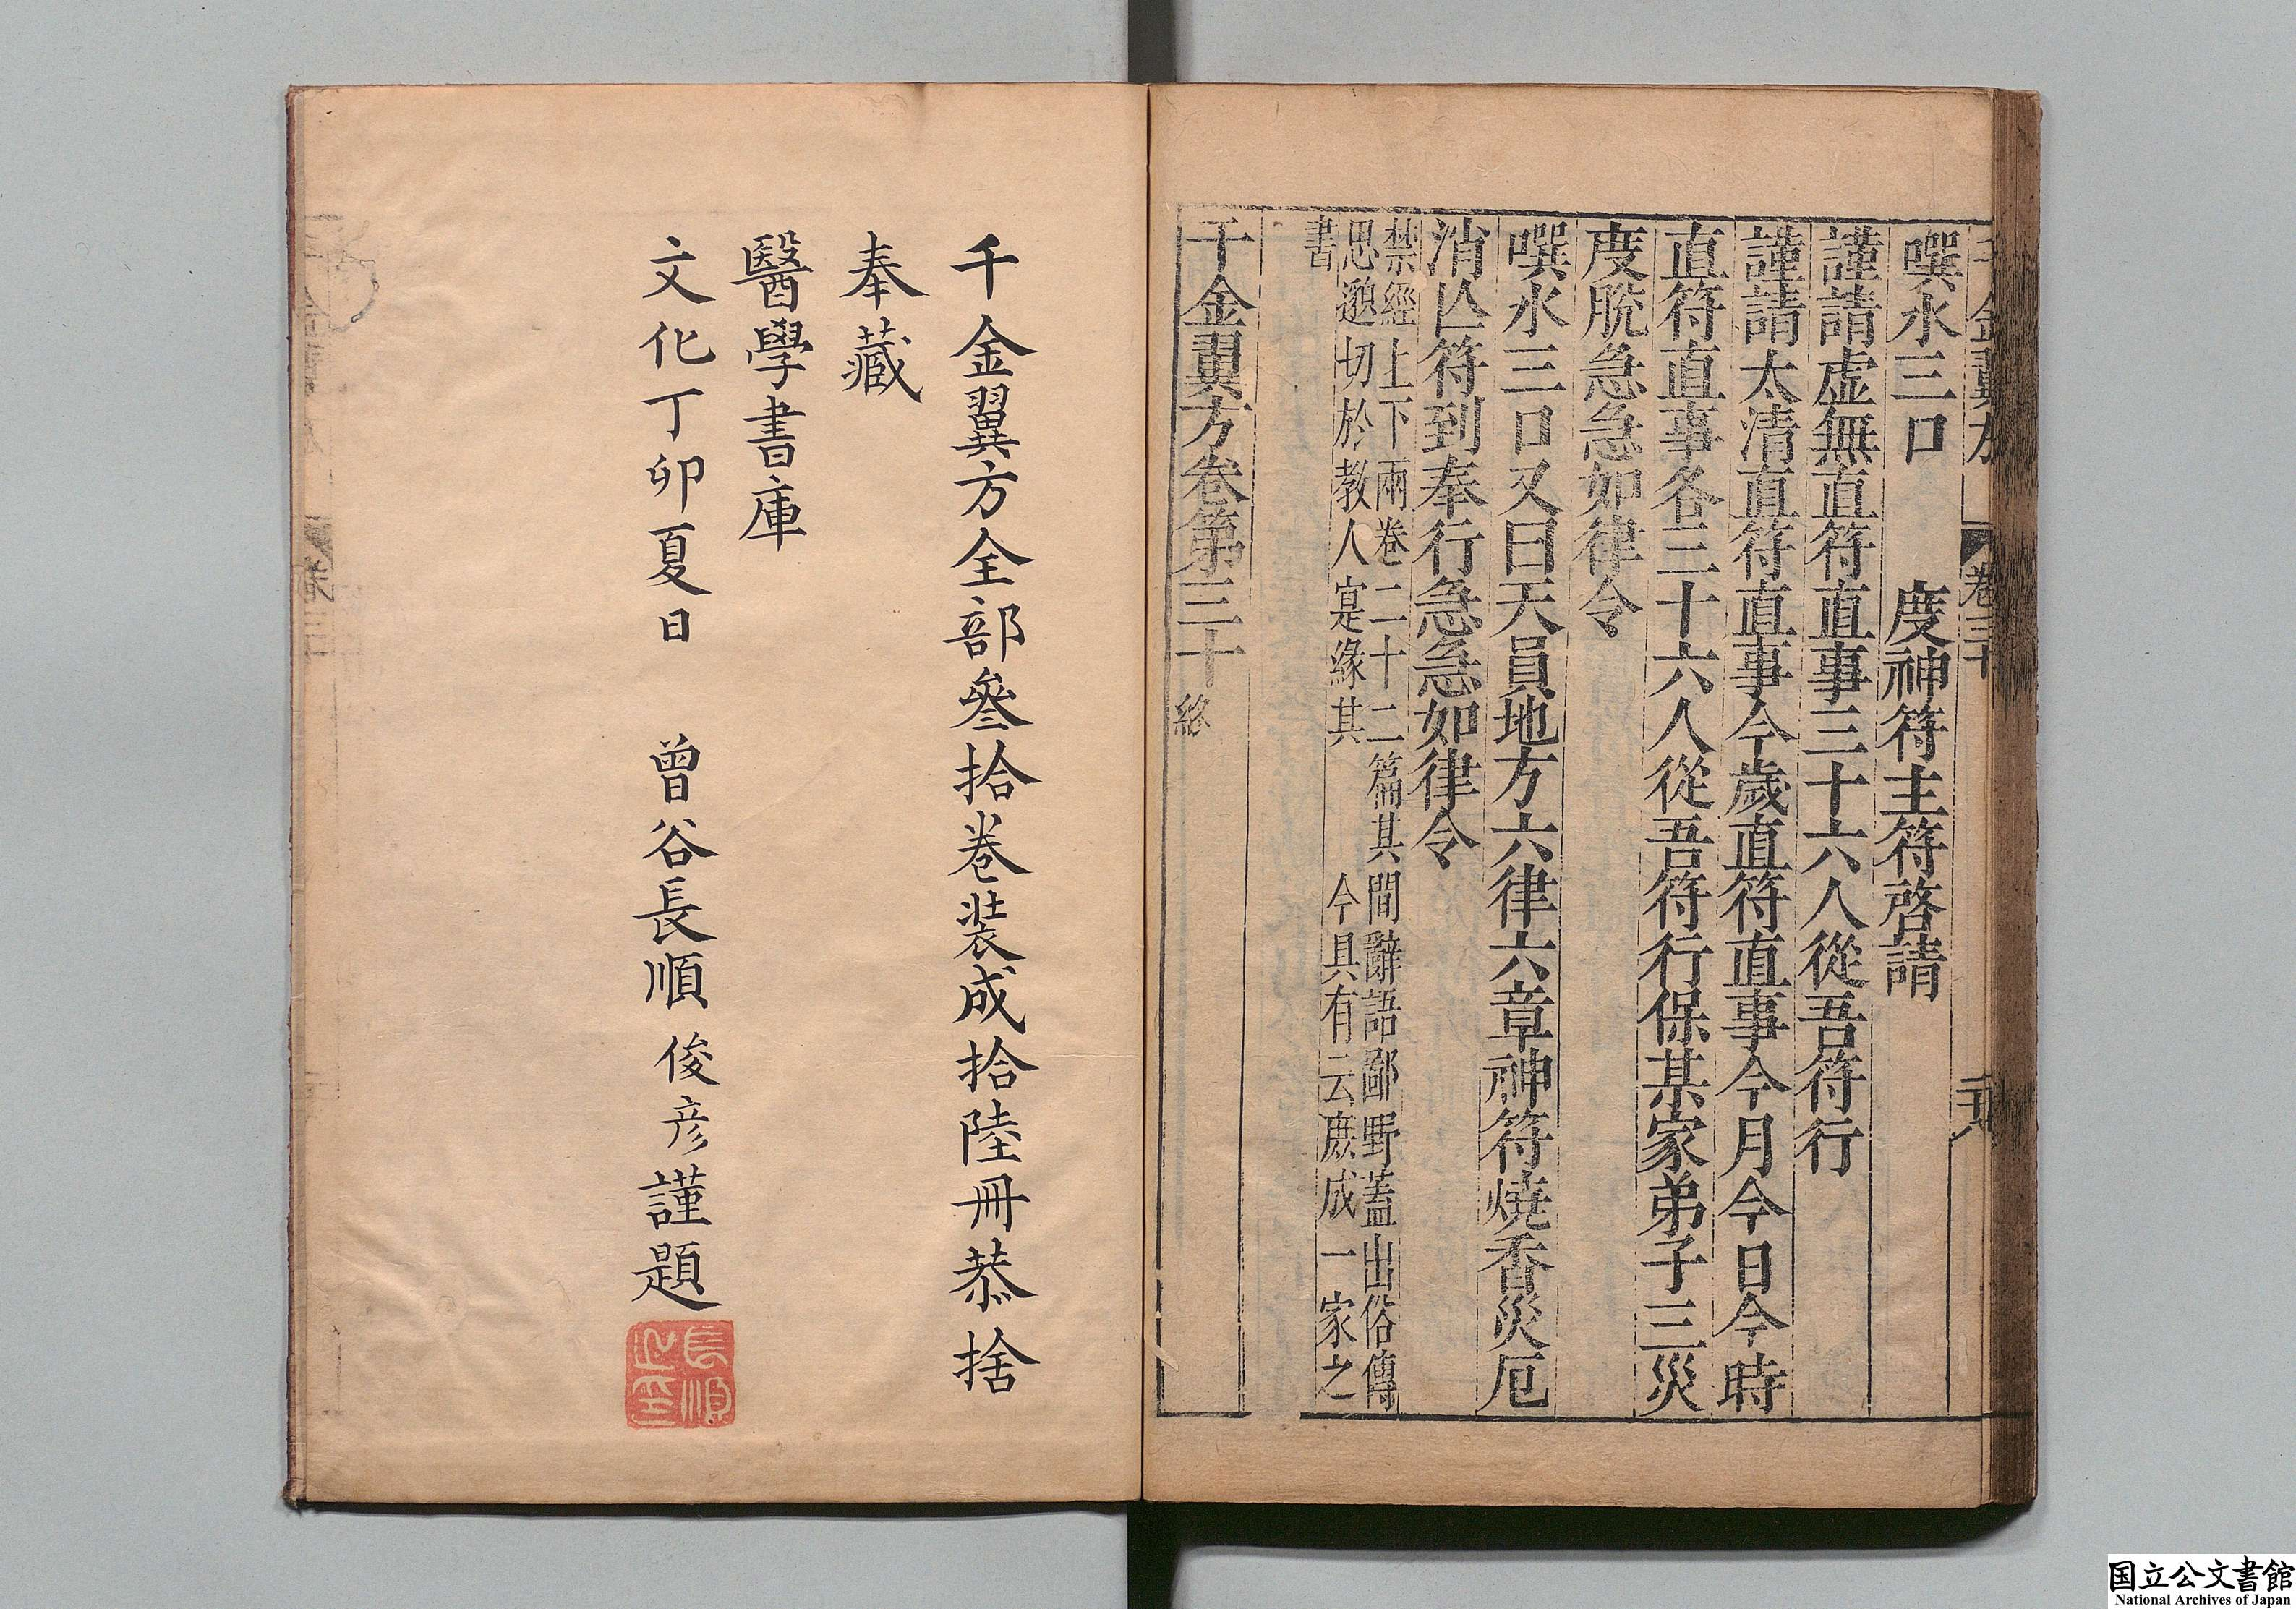 噀水三口　　度神符主符啓請
謹請虚無直符直事三十六人從吾符行
謹請太清直符直事今歲直符直事今月今日今時
直符直事各三十六人從吾符行行保某家弟子三災
度脫急急如律令
噀水三口又曰天員地方六律六章神符燒香災厄
消亾符到奉行急急如律令
禁經上下兩卷二十二篇其間辭語鄙野蓋出俗傳
思邈切於教人寔緣其　今具有云庶成一家之
書
千金翼方卷第三十終
千金翼方全部叄拾卷装成拾陸冊恭捨
奉藏
醫學書庫
文化丁卯夏日　曾谷長順俊彦謹題
長順之印
国立公文書館
National Archives of Japan